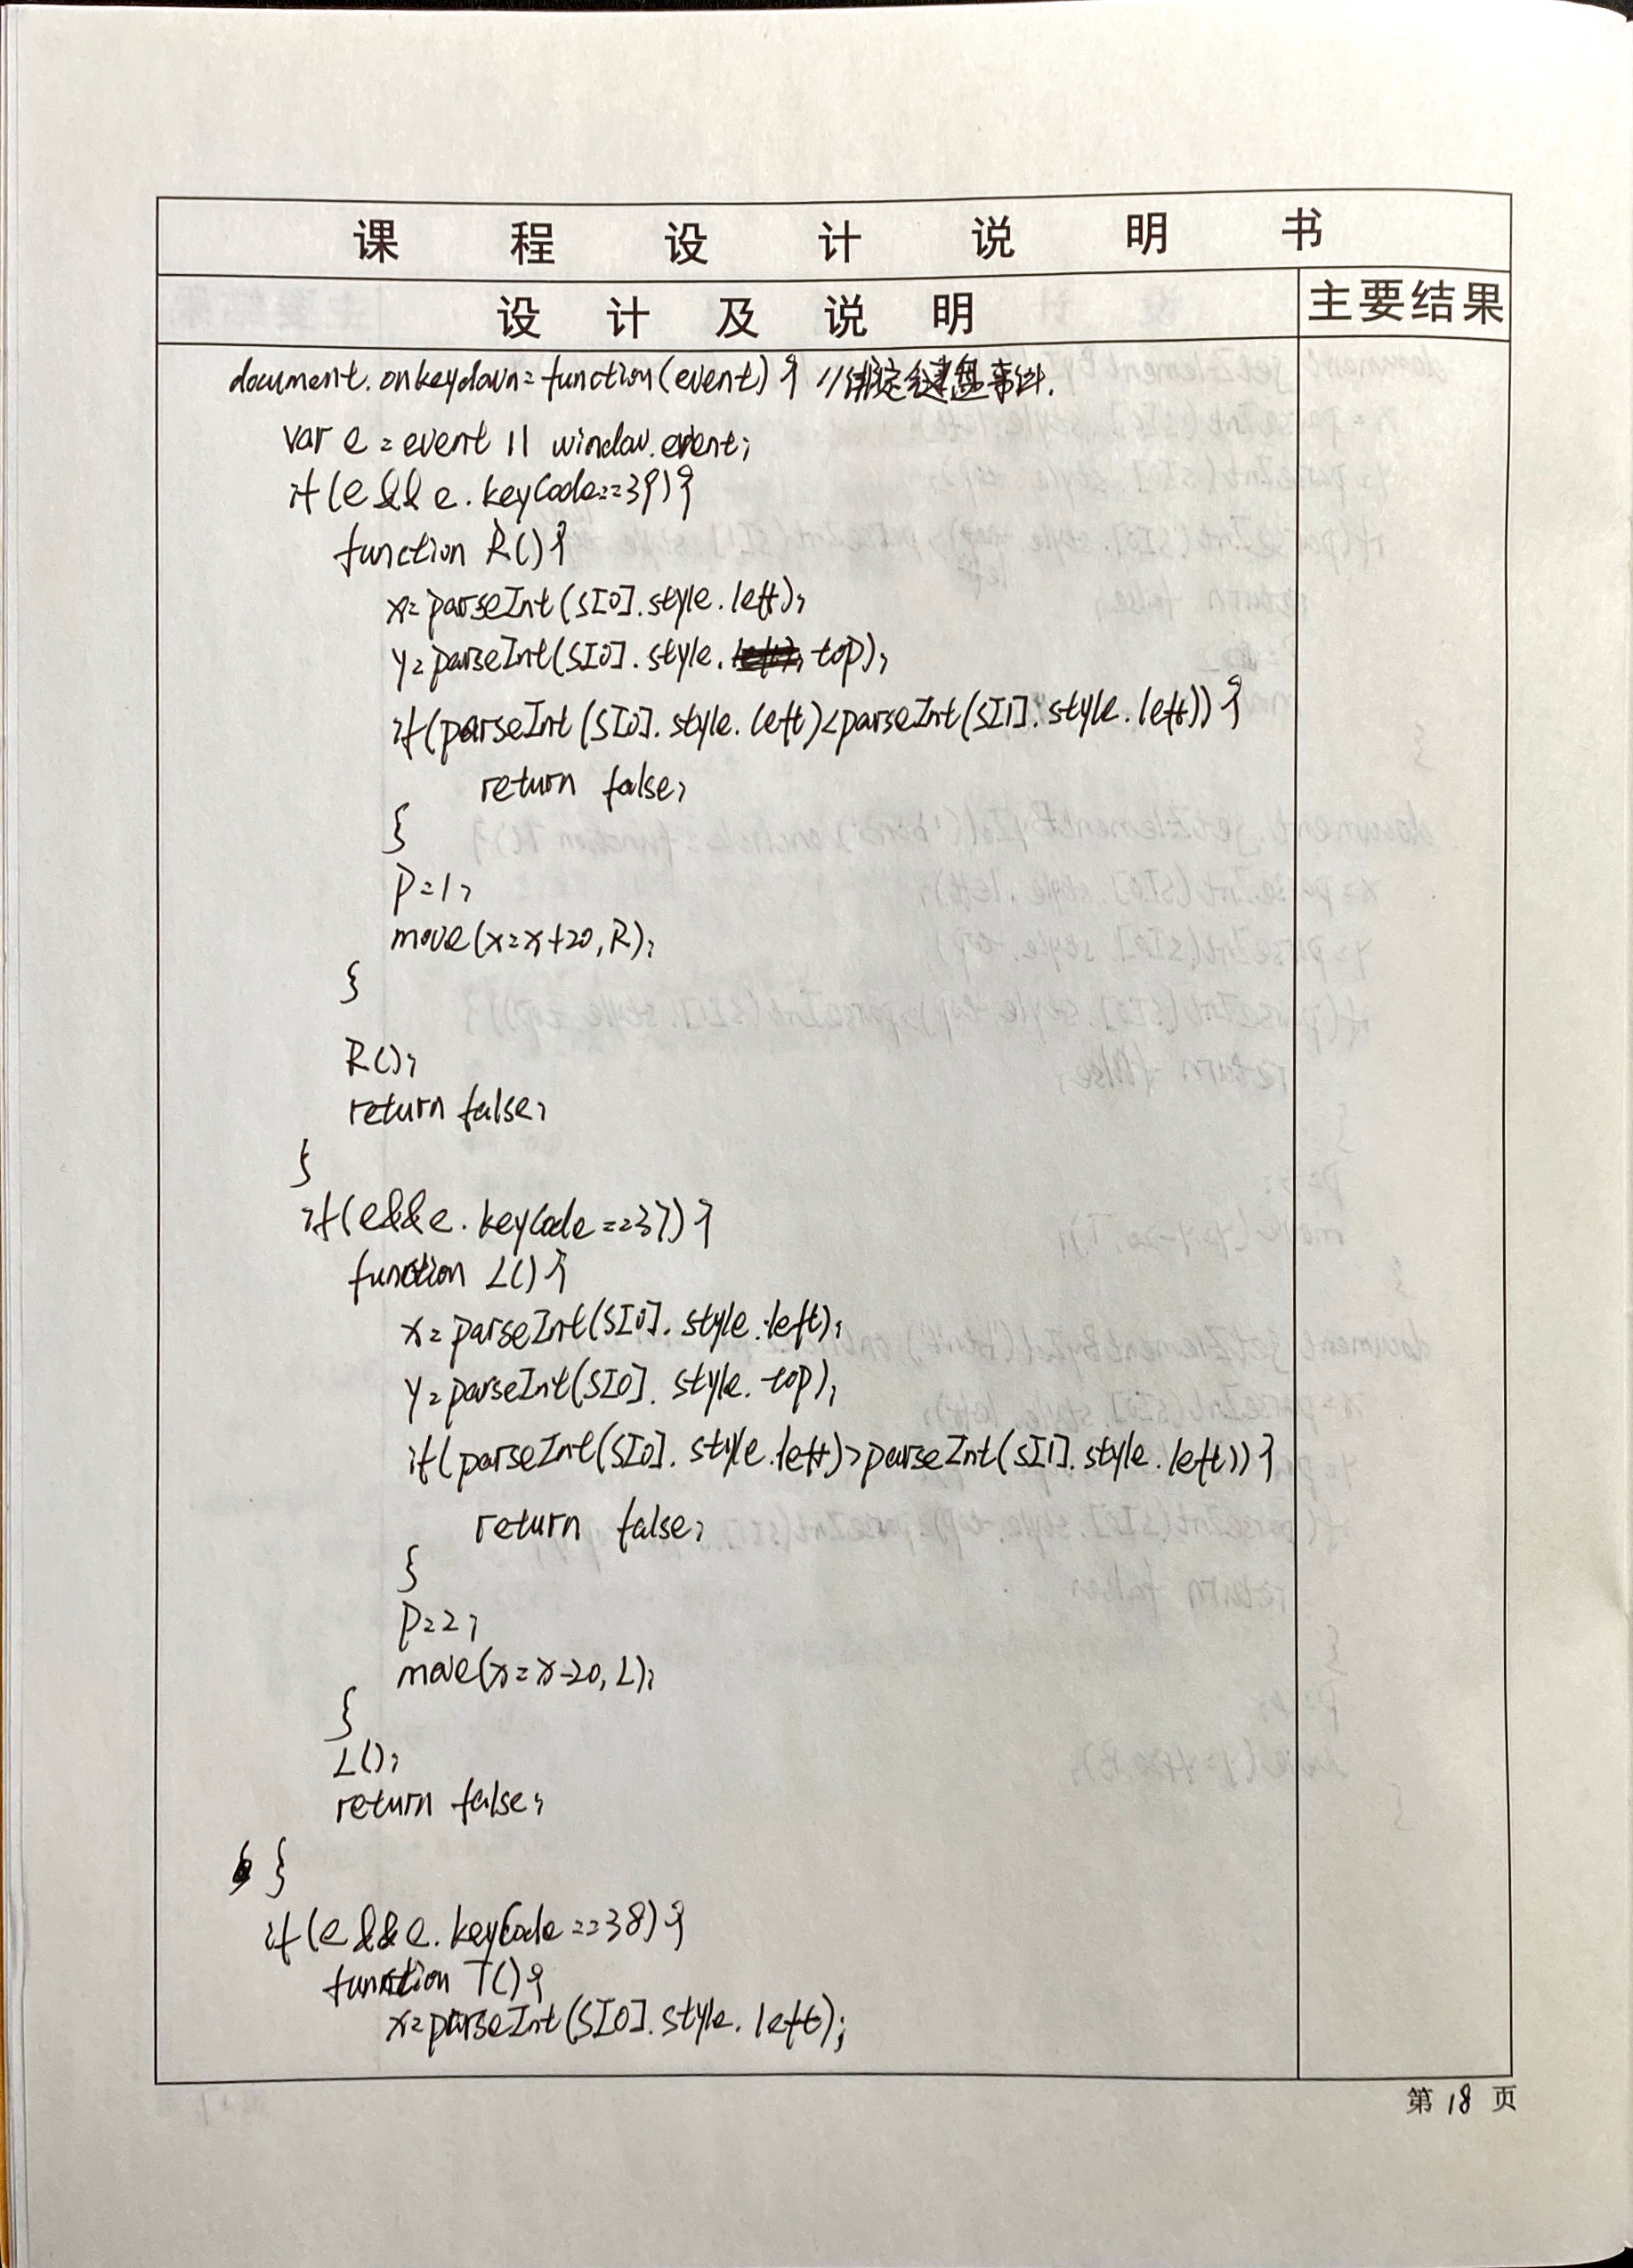 课程设计说明书
设计及说明 主要结果
document.onkeydown=function(event){ //绑定键盘事件.
var e=event || window.event;
if(e&&e.keyCode==39){
function R(){
x=parseInt(S[0].style.left);
y=parseInt(S[0].style.top);
if(parseInt(S[0].style.left)<parseInt(S[1].style.left)){
return false;
}
P=1;
move(x=x+20,R);
}
R();
return false;
}
if(e&&e.keyCode==37){
function L(){
x=parseInt(S[0].style.left);
y=parseInt(S[0].style.top);
if(parseInt(S[0].style.left)>parseInt(S[1].style.left)){
return false;
}
P=2;
move(x=x-20,L);
}
L();
return false;
}
if(e&&e.keyCode==38){
function T(){
x=parseInt(S[0].style.left);
第 18 页